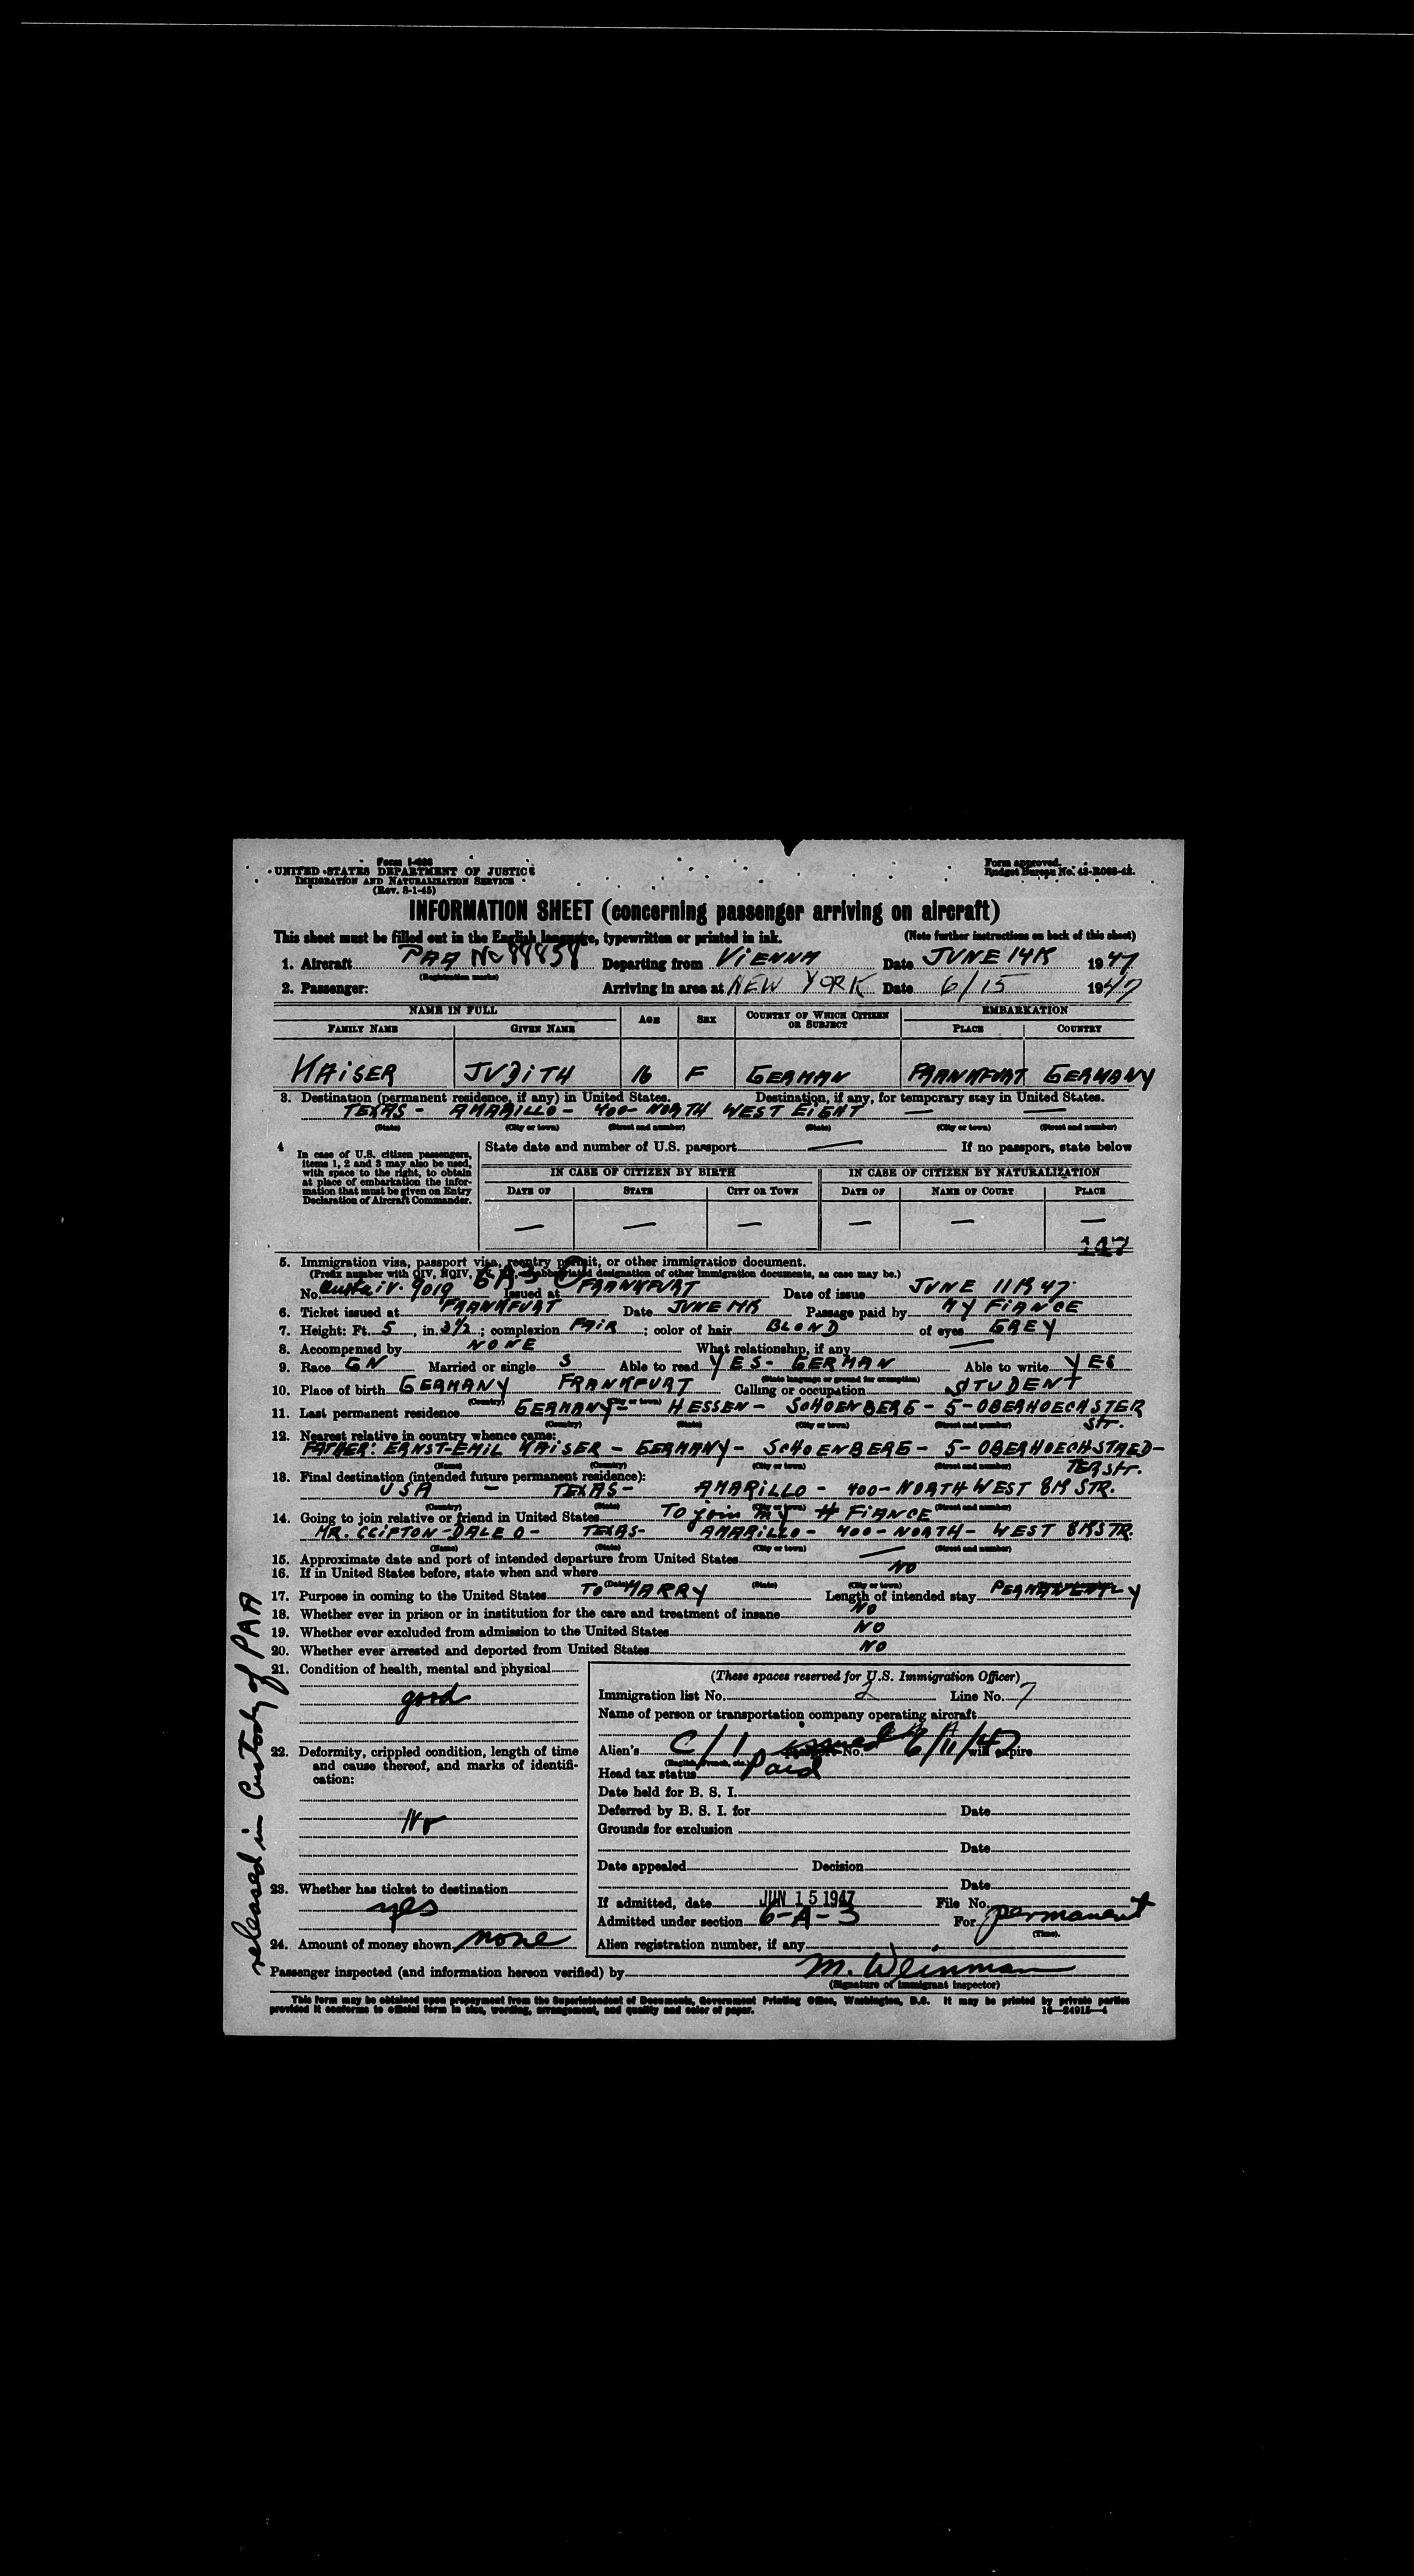 Form I-466
UNITED STATES DEPARTMENT OF JUSTICE
IMMIGRATION AND NATURALIZATION SERVICE
(Rev. 8-1-45)
Form approved.
Budget Bureau No. 43-R063-42.
INFORMATION SHEET (concerning passenger arriving on aircraft)
This sheet must be filled out in the English language, typewritten or printed in ink. (Note further instructions on back of this sheet)
1. Aircraft PAA NC Departing from VIENNA Date JUNE 14th 1947
(Registration marks)
2. Passenger: Arriving in area at NEW YORK Date 6/15 1947
NAME IN FULL AGE SEX COUNTRY OF WHICH CITIZEN OR SUBJECT EMBARKATION
FAMILY NAME GIVEN NAME PLACE COUNTRY
KAISER JUDITH 16 F GERMAN FRANKFURT GERMANY
3. Destination (permanent residence, if any) in United States. Destination, if any, for temporary stay in United States.
TEXAS - AMARILLO - 400 - NORTH WEST EIGHT — —
(State) (City or town) (Street and number) (State) (City or town) (Street and number)
4 In case of U.S. citizen passengers, items 1, 2 and 3 may also be used, with space to the right, to obtain at place of embarkation the information that must be given on Entry Declaration of Aircraft Commander.
State date and number of U.S. passport — If no passport, state below
IN CASE OF CITIZEN BY BIRTH IN CASE OF CITIZEN BY NATURALIZATION
DATE OF STATE CITY OR TOWN DATE OF NAME OF COURT PLACE
— — — — — —
147
5. Immigration visa, passport visa, reentry permit, or other immigration document.
(Prefix number with QIV, NQIV, abbreviated designation of other immigration documents, as case may be.)
6A3
No. 9019 Issued at FRANKFURT Date of issue JUNE 11th 47
6. Ticket issued at FRANKFURT Date JUNE 14th Passage paid by MY FIANCE
7. Height: Ft. 5, in. 3½; complexion FAIR; color of hair BLOND of eyes GREY
8. Accompanied by NONE What relationship, if any —
9. Race GN Married or single S Able to read YES - GERMAN Able to write YES
(State language or ground for exemption)
10. Place of birth GERMANY FRANKFURT Calling or occupation STUDENT
(Country) (City or town)
11. Last permanent residence GERMANY - HESSEN - SCHOENBERG - 5 - OBERHOECHSTER Str.
(Country) (State) (City or town) (Street and number)
12. Nearest relative in country whence came:
FATHER: ERNST-EMIL KAISER - GERMANY - SCHOENBERG - 5 - OBERHOECHSTAED-
TER Str.
(Name) (Country) (City or town) (Street and number)
13. Final destination (intended future permanent residence):
USA - TEXAS - AMARILLO - 400 - NORTH WEST 8th STR.
(Country) (State) (City or town) (Street and number)
14. Going to join relative or friend in United States To join my FIANCE
MR. CLIFTON - DALE O - TEXAS - AMARILLO - 400 - NORTH - WEST 8th STR
(Name) (State) (City or town) (Street and number)
15. Approximate date and port of intended departure from United States —
16. If in United States before, state when and where NO
(Date) (State) (City or town)
17. Purpose in coming to the United States TO MARRY Length of intended stay PERMANENTLY
18. Whether ever in prison or in institution for the care and treatment of insane NO
19. Whether ever excluded from admission to the United States NO
20. Whether ever arrested and deported from United States NO
21. Condition of health, mental and physical
good
22. Deformity, crippled condition, length of time and cause thereof, and marks of identification:
No
23. Whether has ticket to destination
yes
24. Amount of money shown none
(These spaces reserved for U.S. Immigration Officer)
Immigration list No. 2 Line No. 7
Name of person or transportation company operating aircraft
Alien's C/I issued 6/11/47 will expire
Head tax status Paid
Date held for B. S. I.
Deferred by B. S. I. for Date
Grounds for exclusion
Date
Date appealed Decision
Date
If admitted, date JUN 15 1947 File No.
Admitted under section 6-A-3 For permanent
(Time).
Alien registration number, if any
Passenger inspected (and information hereon verified) by M. Weinman
(Signature of immigrant inspector)
This form may be obtained upon prepayment from the Superintendent of Documents, Government Printing Office, Washington, D.C. It may be printed by private parties
provided it conforms to official form in size, wording, arrangement, and quality and color of paper. 16—24915-4
released in Custody of PAA